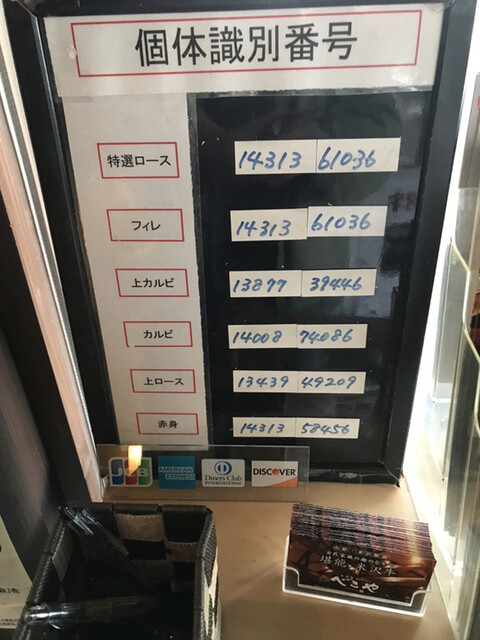 個体識別番号
特選ロース 14313 61036
フィレ 14313 61036
上カルビ 13877 39446
カルビ 14008 74086
上ロース 13439 49209
赤身 14313 58456
JCB
AMERICAN EXPRESS
Diners Club
INTERNATIONAL
DISCOVER
堪能・米沢牛
べこや